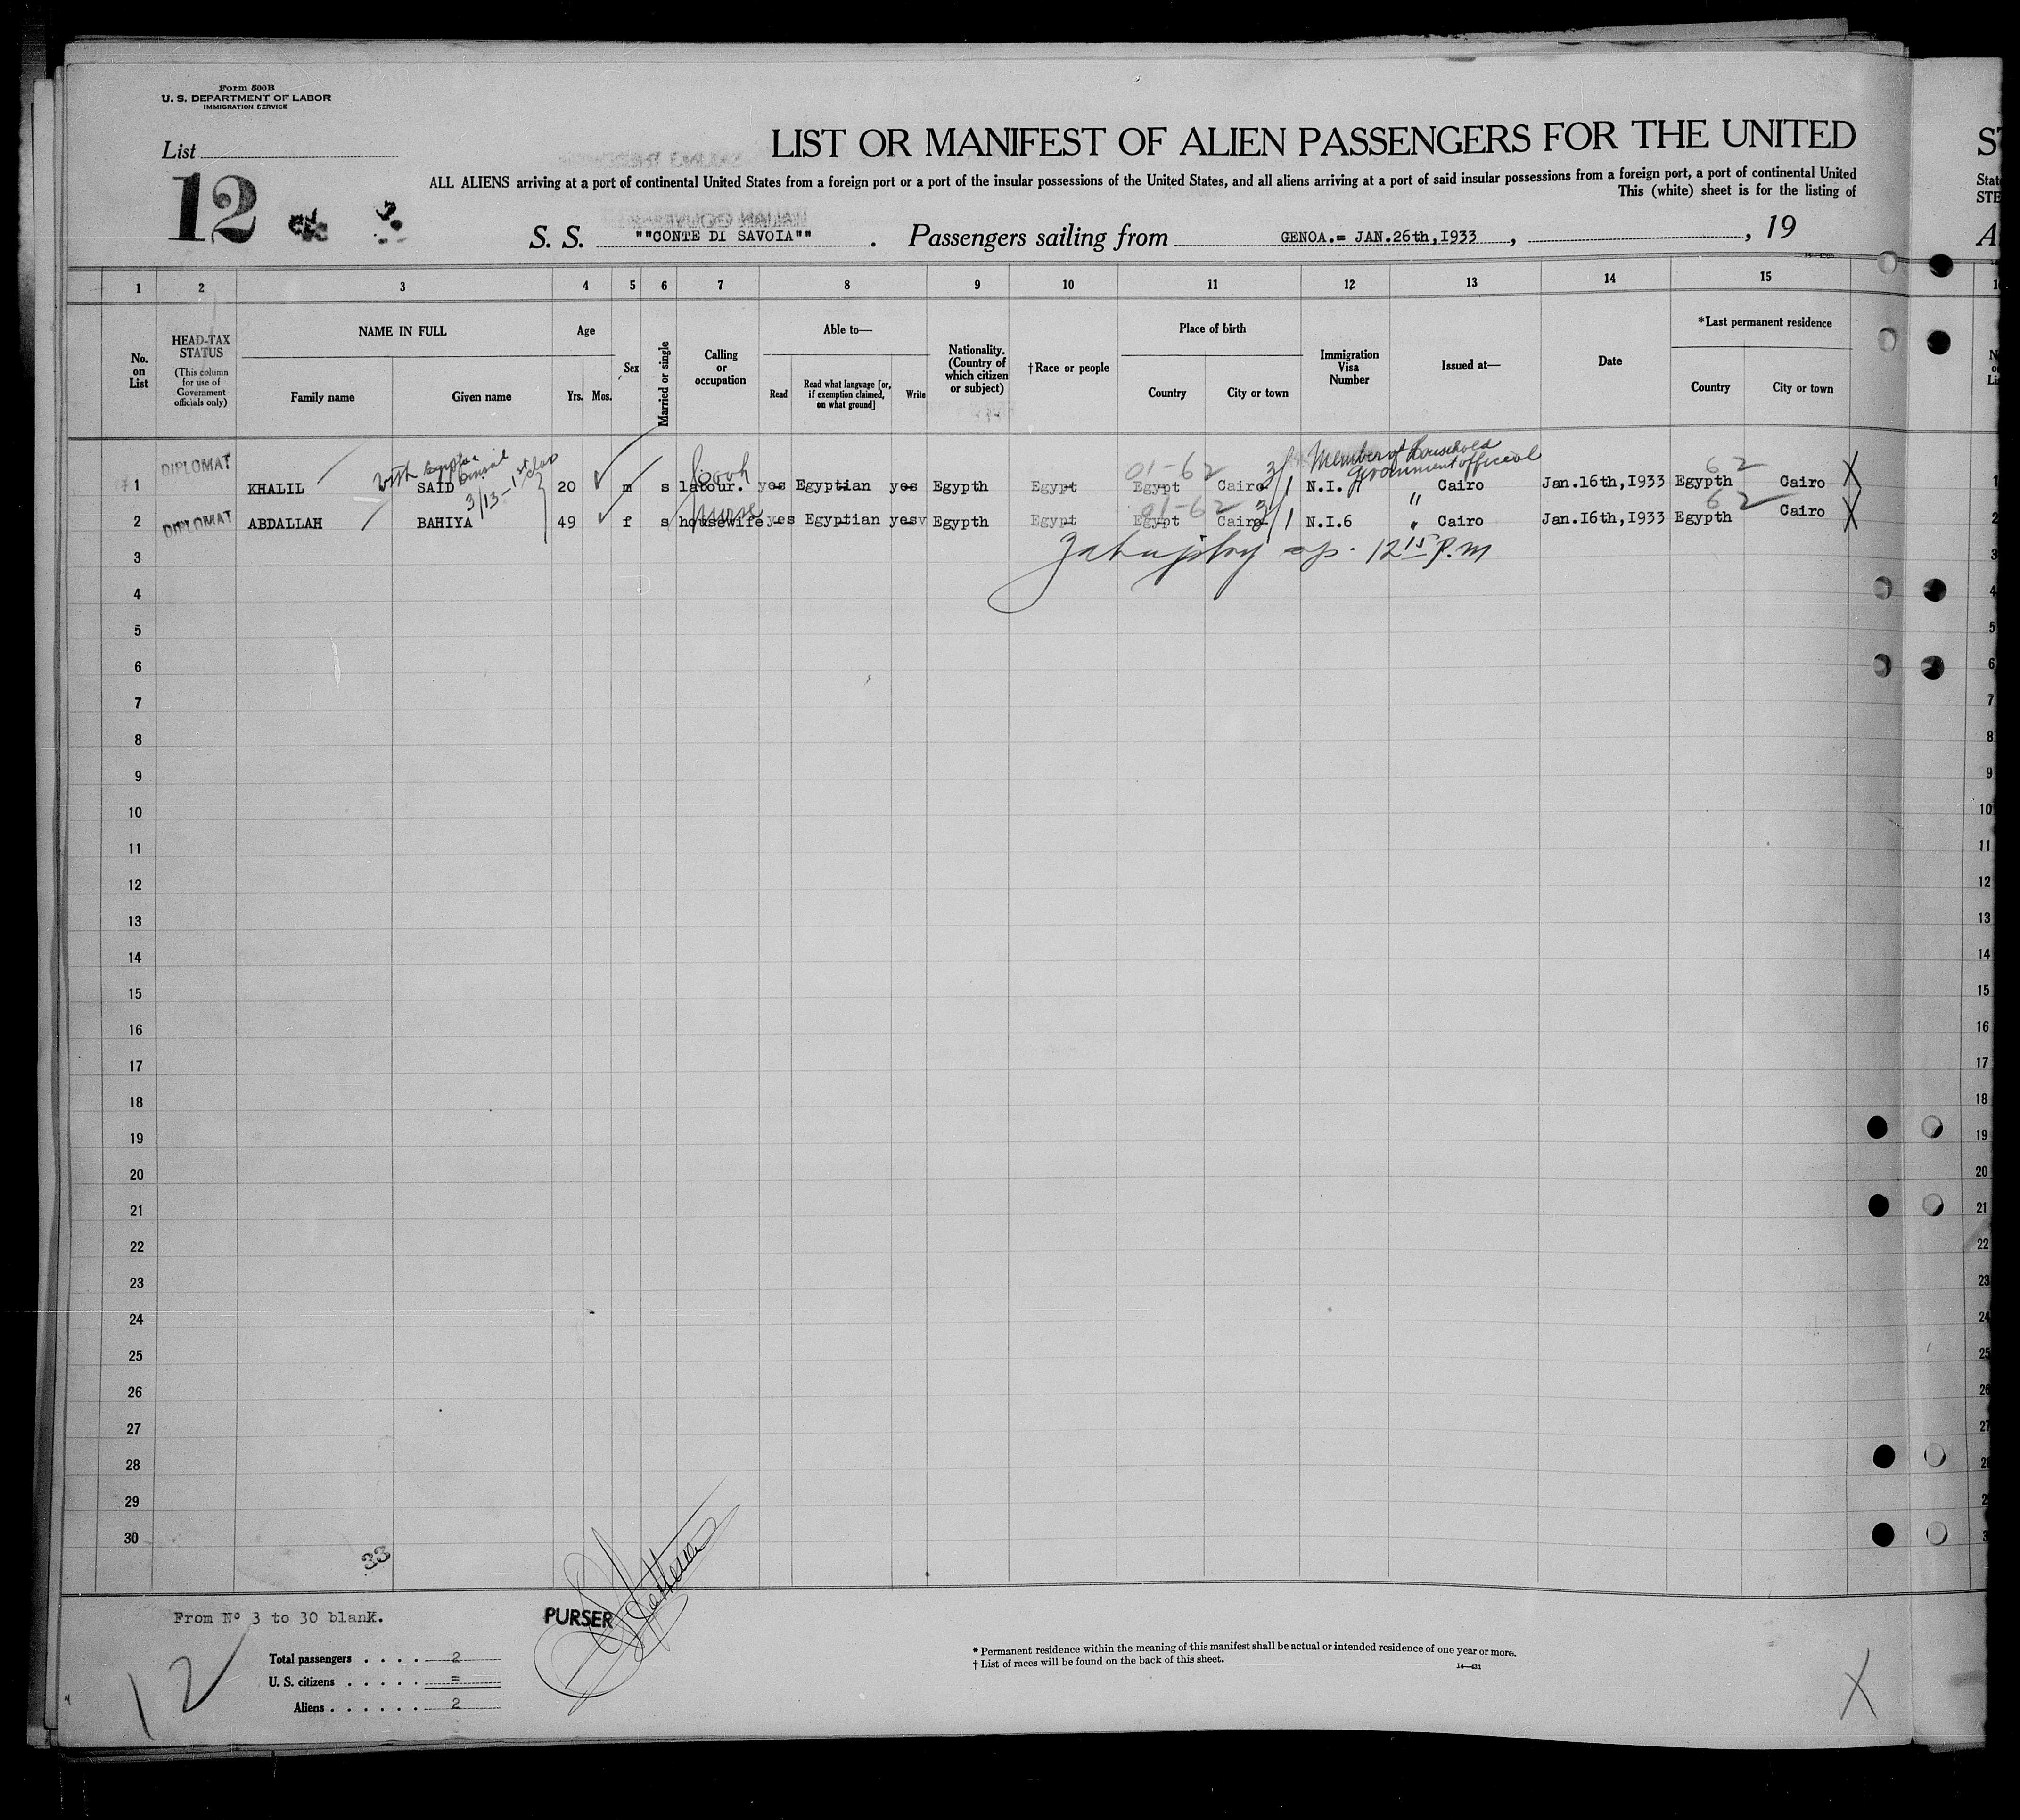 Form 500B
U. S. DEPARTMENT OF LABOR
IMMIGRATION SERVICE
List
12
LIST OR MANIFEST OF ALIEN PASSENGERS FOR THE UNITED
ALL ALIENS arriving at a port of continental United States from a foreign port or a port of the insular possessions of the United States, and all aliens arriving at a port of said insular possessions from a foreign port, a port of continental United
This (white) sheet is for the listing of
S. S. ""CONTE DI SAVOIA"" . Passengers sailing from GENOA.= JAN.26th,1933 , , 19
1 2 3 4 5 6 7 8 9 10 11 12 13 14 15
No. on List
HEAD-TAX STATUS
(This column for use of Government officials only)
NAME IN FULL
Family name Given name
Age
Yrs. Mos.
Sex
Married or single
Calling or occupation
Able to—
Read
Read what language [or, if exemption claimed, on what ground]
Write
Nationality. (Country of which citizen or subject)
†Race or people
Place of birth
Country City or town
Immigration Visa Number
Issued at—
Date
*Last permanent residence
Country City or town
with Egyptian Consul
3/13-1st class
Cook
01-62
Member of Household
Government official
62
DIPLOMAT
1 KHALIL SAID 20 m s labour. yes Egyptian yes Egypth Egypt Egypt Cairo N.I. " Cairo Jan.16th,1933 Egypth Cairo
nurse
01-62
"
62
DIPLOMAT
2 ABDALLAH BAHIYA 49 f s housewife yes Egyptian yes Egypth Egypt Egypt Cairo N.I.6 " Cairo Jan.16th,1933 Egypth Cairo
3
12 15 P.m
4
5
6
7
8
9
10
11
12
13
14
15
16
17
18
19
20
21
22
23
24
25
26
27
28
29
30
33
From Nº 3 to 30 blank.
PURSER
12
Total passengers . . . . 2
U. S. citizens . . . . . =
Aliens . . . . . . 2
* Permanent residence within the meaning of this manifest shall be actual or intended residence of one year or more.
† List of races will be found on the back of this sheet.
14—431
X